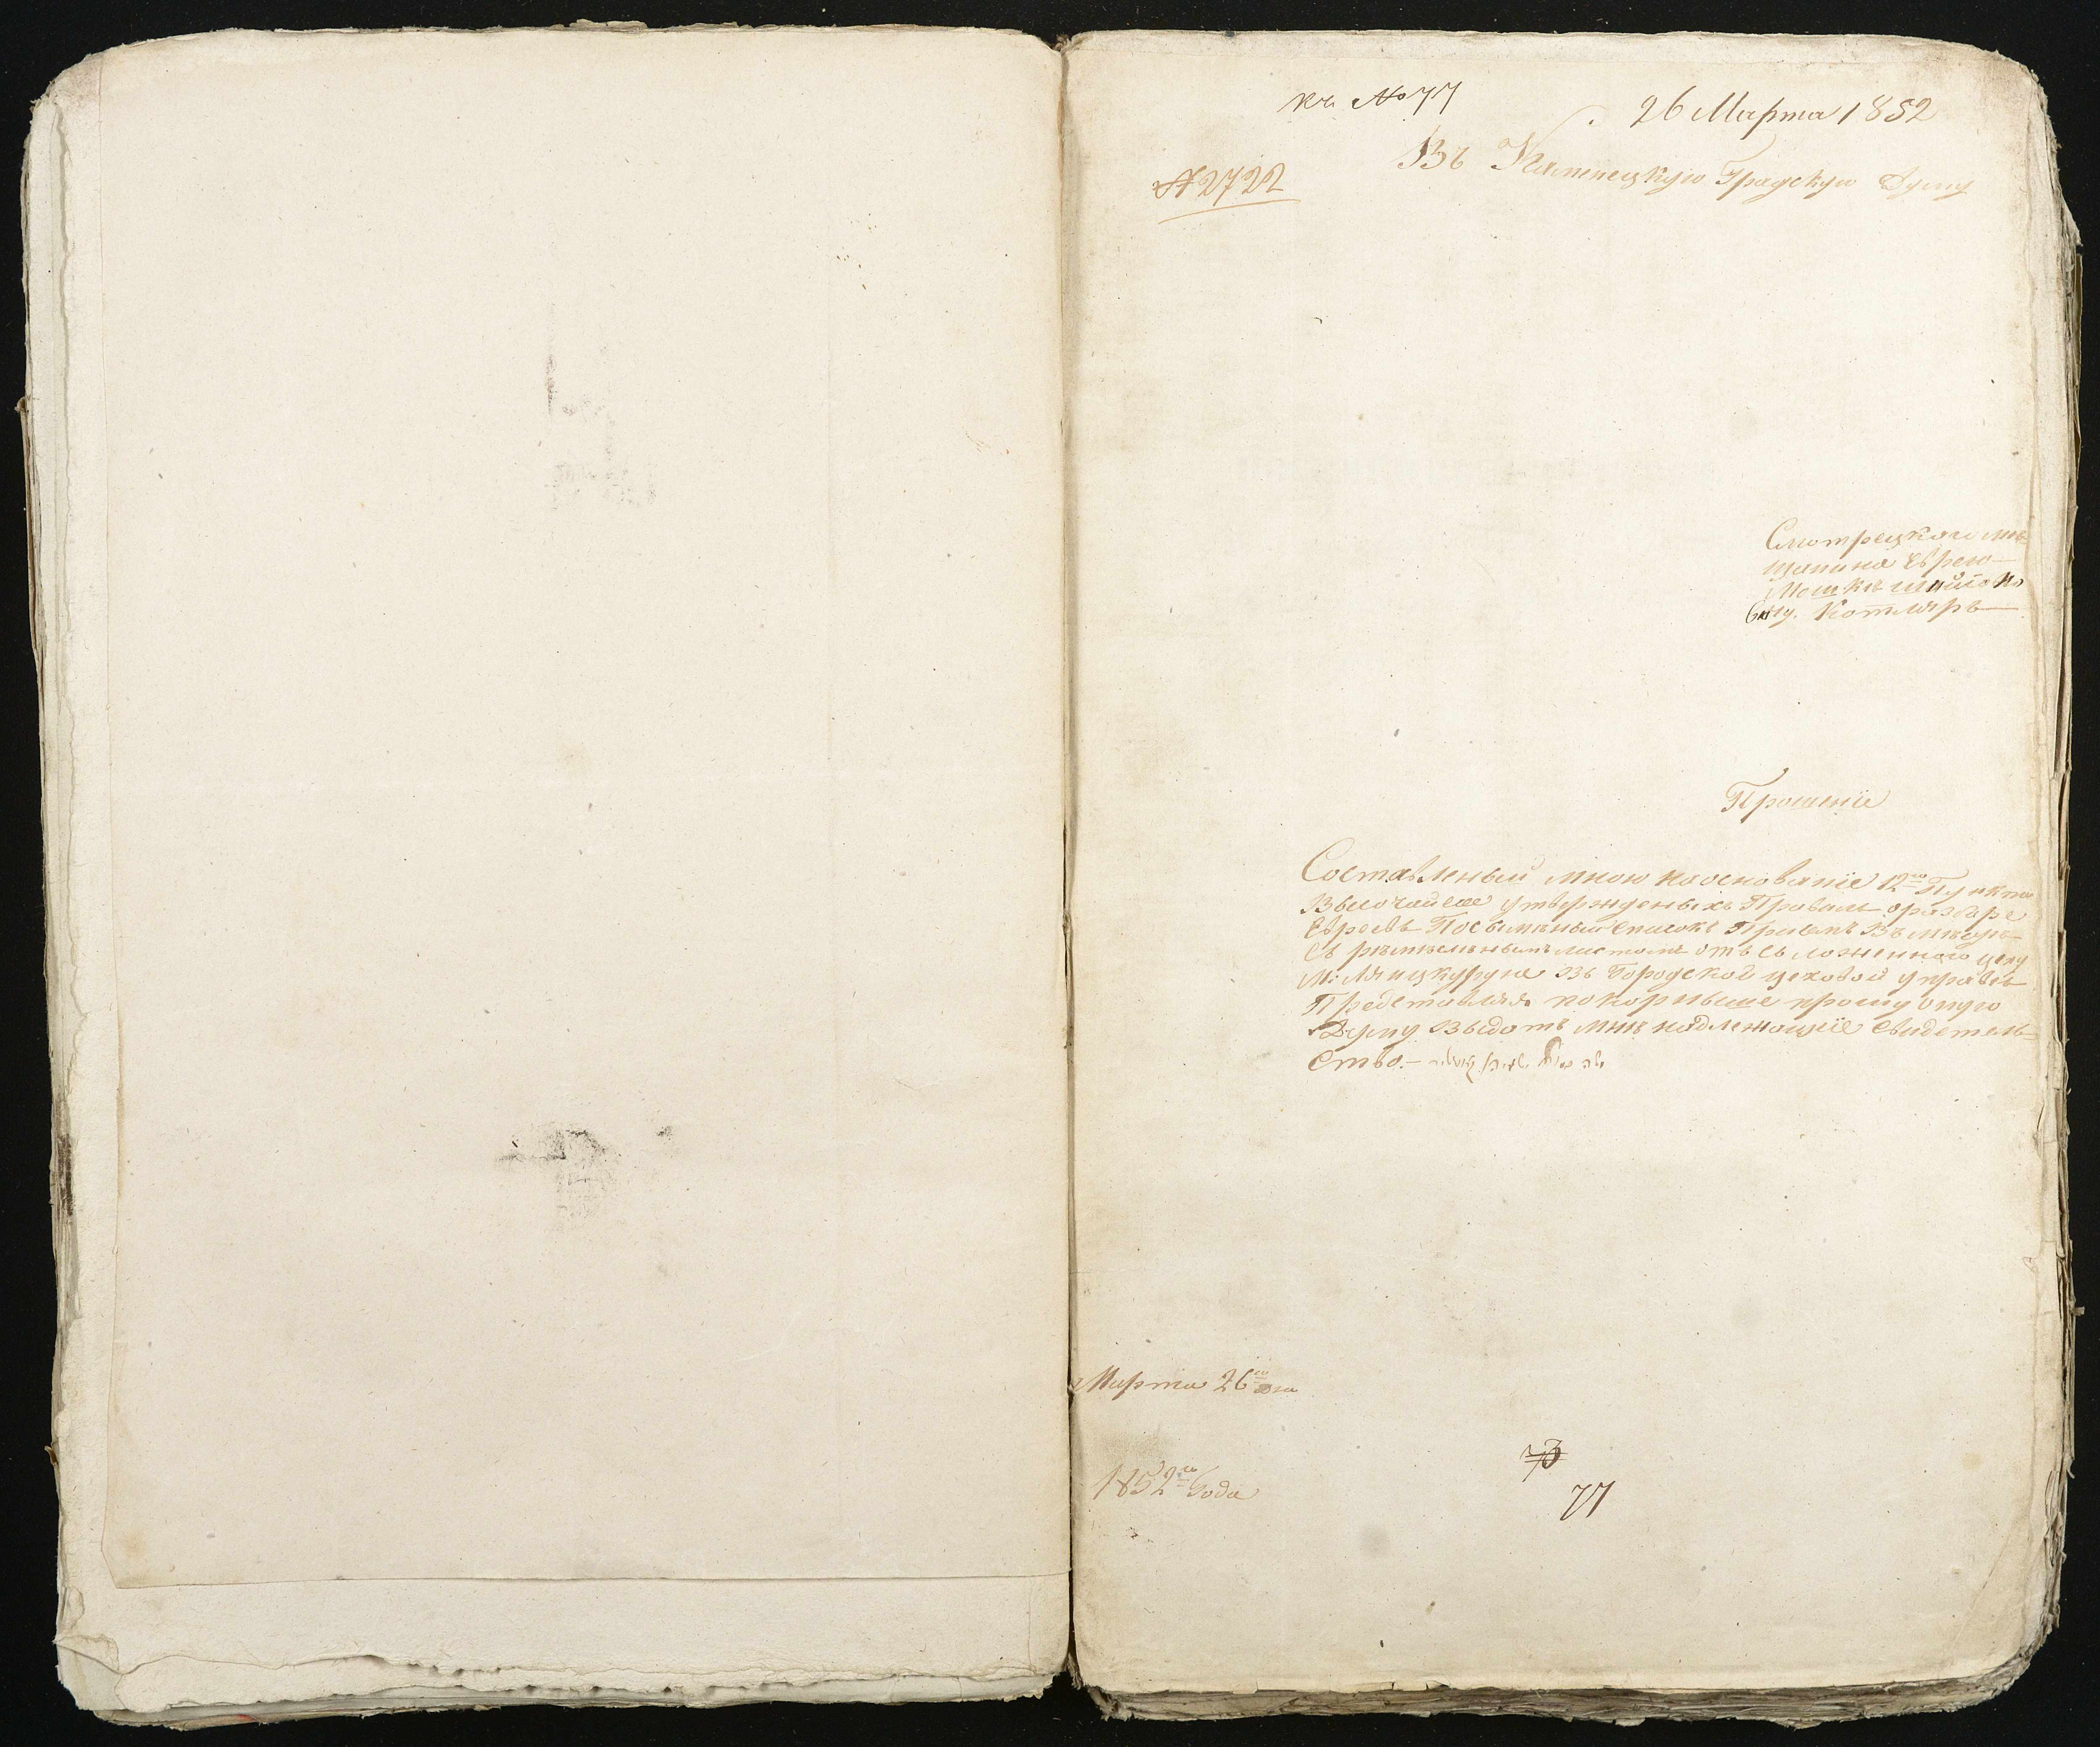 къ №77
26 Марта 1852
№2722
Въ Каменецкую Градскую Думу
Смотрецкаго мѣ-
щанина Еврею
Мошкѣ
ву. Котляръ
Прошеніе
Составленый мною наоснование 12го Пункта
Высочайше утвержденыхъ Правилъ оразборе
Евреевъ Посымѣный списокъ Приемъ Въ мѣсте
Съ ремѣсленымъ листомъ отъ Сложенного цеху
Въ Городской цеховой управы
Представляя покорнѣше прошу оную
Думу Выдать мнѣ надлежащіе Свидетель-
Ство.-
Марта 26го дня
1852го Года
73
77